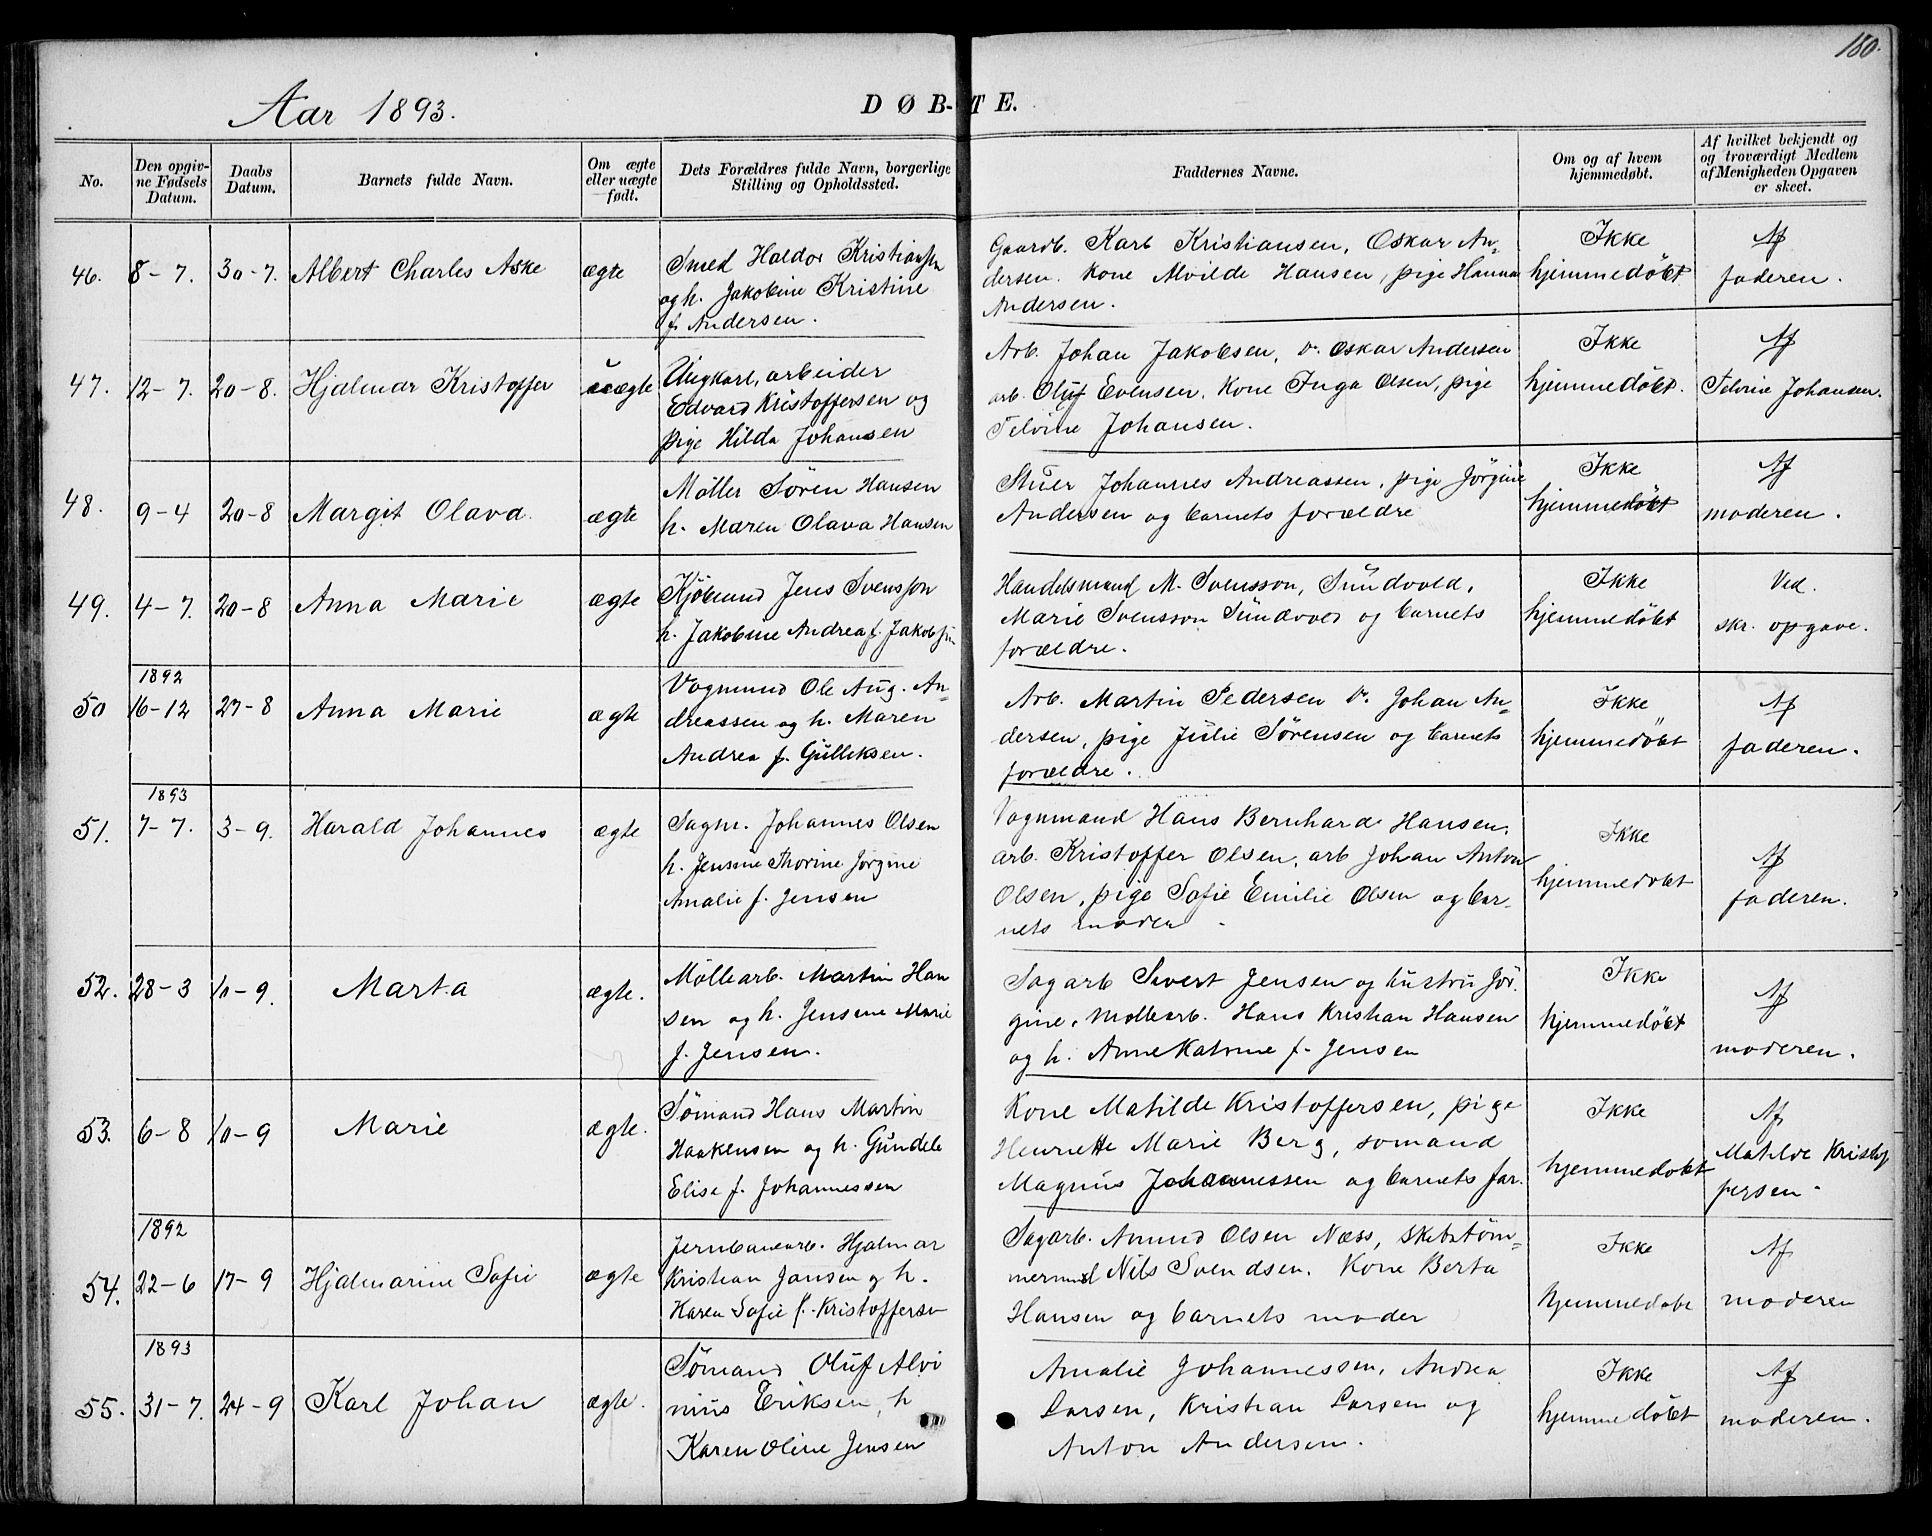 180.
Aar 1893.
DØB-TE.
No.
Den opgiv-
ne Fødsels
Datum.
Daabs
Datum.
Barnets fulde Navn.
Om ægte
eller uægte
født.
Dets Forældres fulde Navn, borgerlige
Stilling og Opholdssted.
Faddernes Navne.
Om og af hvem
hjemmedøbt.
Af hvilket bekjendt og
og troværdigt Medlem
af Menigheden Opgaven
er skeet.
46. 8-7. 30-7. Albert Charles Aske ægte
Smed Haldor Kristiansen
og h. Jakobine Kristine
f. Andersen.
Gaardb. Karl Kristiansen, Oskar An=
dersen. Kone Alvilde Hansen, pige Hanna
Andersen.
Ikke
hjemmedøbt
Af
faderen.
47. 12-7. 20-8. Hjalmar Kristoffer uægte
Ungkarl, arbeider
Edvard Kristoffersen og
pige Hilda Johansen
Arb. Johan Jakobsen, do. Oskar Andersen
arb. Oluf Evensen. Kone Inga Olsen, pige
Telvine Johansen.
Ikke
hjemmedøbt.
Af
Telvine Johansen.
48. 9-4 20-8 Margit Olava. ægte
Møller Søren Hansen
h. Maren Olava Hansen
Stuer Johannes Andreassen, pige Jørgine
Andersen og barnets forældre
Ikke
hjemmedøbt
Af
moderen.
49. 4-7. 20-8 Anna Marie ægte
Kjøbmand Jens Svensson
h. Jakobine Andrea f. Jakobsen
Handelsmand M. Svensson, Sundvold,
Marie Svensson Sundvold og barnets
forældre.
Ikke
hjemmedøbt
Ved.
skr. opgave.
1892
50 16-12 27-8 Anna Marie ægte
Vognmand Ole Aug. An=
dreassen og h. Maren
Andrea f. Gulliksen.
Arb. Martin Pedersen do. Johan An=
dersen, pige Julie Sørensen og barnets
forældre.
Ikke
hjemmedøbt
Af
faderen.
1893
51. 7-7. 3-9. Harald Johannes ægte
Sagm. Johannes Olsen
h. Jensine Thorine Jørgine
Amalie f. Jensen
Vognmand Hans Bernhard Hansen,
arb. Kristoffer Olsen, arb Johan Anton
Olsen, pige Sofie Emilie Olsen og bar-
nets moder
Ikke
hjemmedøbt
Af
faderen.
52. 28-3 10-9. Marta ægte.
Møllearb. Martin Han
sen og h. Jensine Marie
f. Jensen.
Sagarb Sivert Jensen og hustru Jør.
gine, Møllearb. Hans Kristian Hansen
og h. Anne Katrine f. Jensen
Ikke
hjemmedøbt
Af
moderen.
53. 6-8 10-9 Marie ægte.
Sømand Hans Martin
Haakensen og h. Gundele
Elise f. Johannessen
Kone Matilde Kristoffersen, pige
Henriette Marie Berg, sømand
Magnus Johannessen og barnets far.
Ikke
hjemmedøbt
Af
Matilde Kristof
fersen.
1892
54. 22-6 17-9 Hjalmarine Sofie ægte
Jernbanearb. Hjalmar
Kristian Jansen og h.
Karen Sofie f. Kristoffersen
Sagarb. Amund Olsen Næss, skibstøm=
mermd Nils Svendsen. Kone Berta
Hansen og barnets moder
Ikke
hjemmedøbt
Af
moderen
1893
55. 31-7. 24-9 Karl Johan ægte.
Sømand Oluf Alvi
nius Eriksen, h
Karen Oline Jensen
Amalie Johannessen, Andrea
Larsen, Kristian Larsen og
Anton Andersen.
Ikke
hjemmedøbt
Af
moderen.